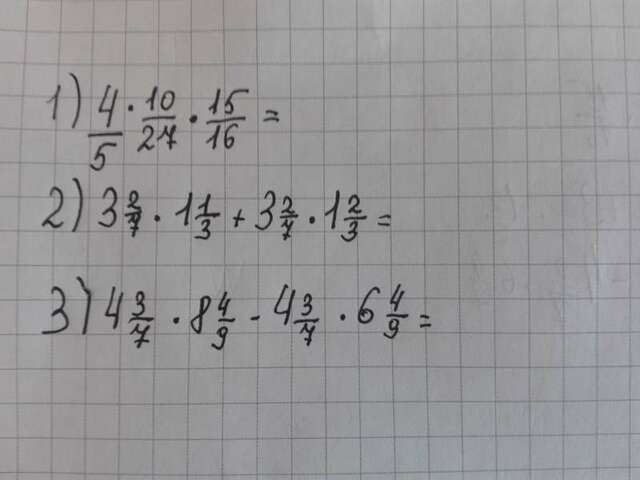 1) 4/5 · 10/27 · 15/16 =
2) 3 2/7 · 1 1/3 + 3 2/7 · 1 2/3 =
3) 4 3/7 · 8 4/9 - 4 3/7 · 6 4/9 =